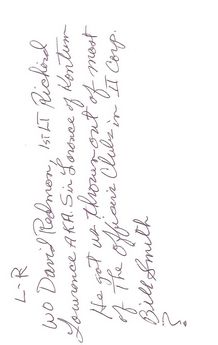 L-R
WO David Redmon, 1st LT Richard
Lawrence AKA Sir Lorence of Kontum
He got us thrown out of most
of The Officers Clubs in II Corp.
Bill Smith
?